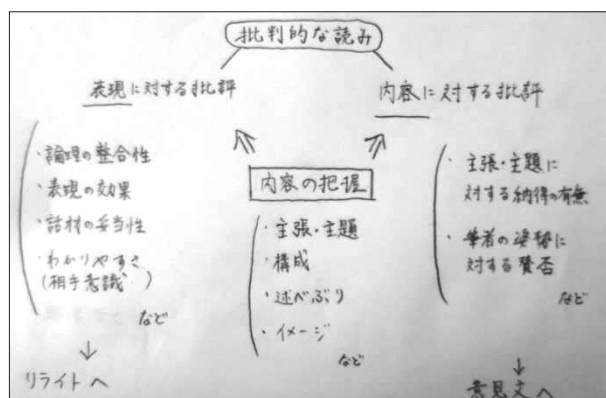 批判的な読み
表現に対する批評
・論理の整合性
・表現の効果
・話材の妥当性
・わかりやすさ
(相手意識)
など
↓
リライトへ
内容の把握
・主張・主題
・構成
・述べぶり
・イメージ
など
内容に対する批評
・主張・主題に
対する納得の有無
・筆者の姿勢に
対する賛否
など
↓
意見文へ